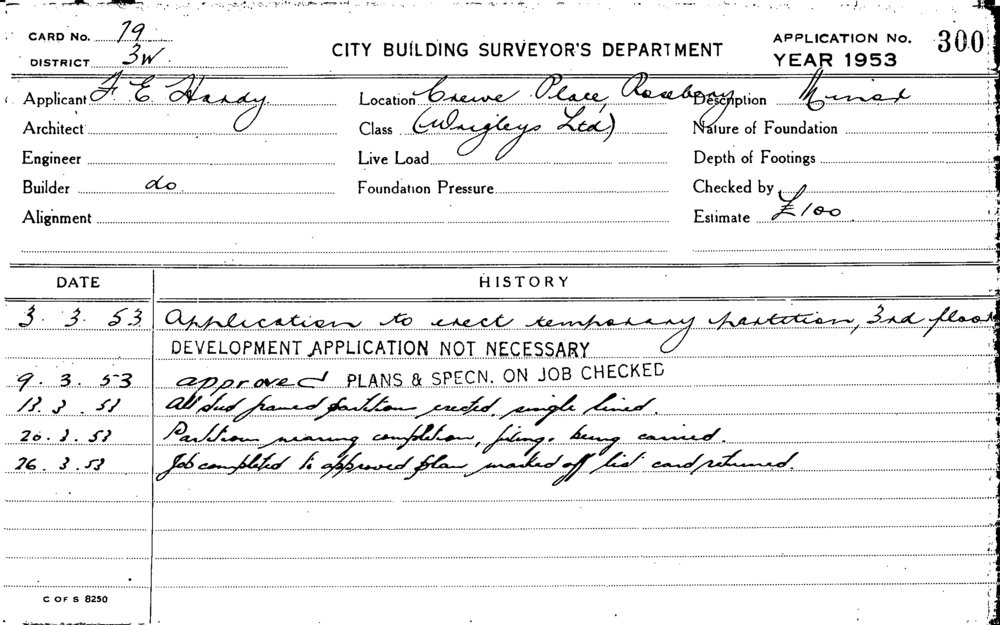 CARD No. 79
DISTRICT 3W.
CITY BUILDING SURVEYOR'S DEPARTMENT
APPLICATION No. 300
YEAR 1953
Applicant F. E. Hardy.
Location Crewe Place, Rosebery
Description Minor
Architect
Class (Wrigleys Ltd)
Nature of Foundation
Engineer
Live Load
Depth of Footings
Builder do
Foundation Pressure
Checked by
Alignment
Estimate £100.
DATE
HISTORY
3. 3. 53 Application to erect temporary partition, 3rd floor
DEVELOPMENT APPLICATION NOT NECESSARY
9. 3. 53 approved PLANS & SPECN. ON JOB CHECKED
13. 3. 53 All stud framed partitions erected, single lined.
20. 3. 53 Partitions nearing completion, being carried.
26. 3. 53 Job completed to approved plan marked off list card returned.
C OF S 8250